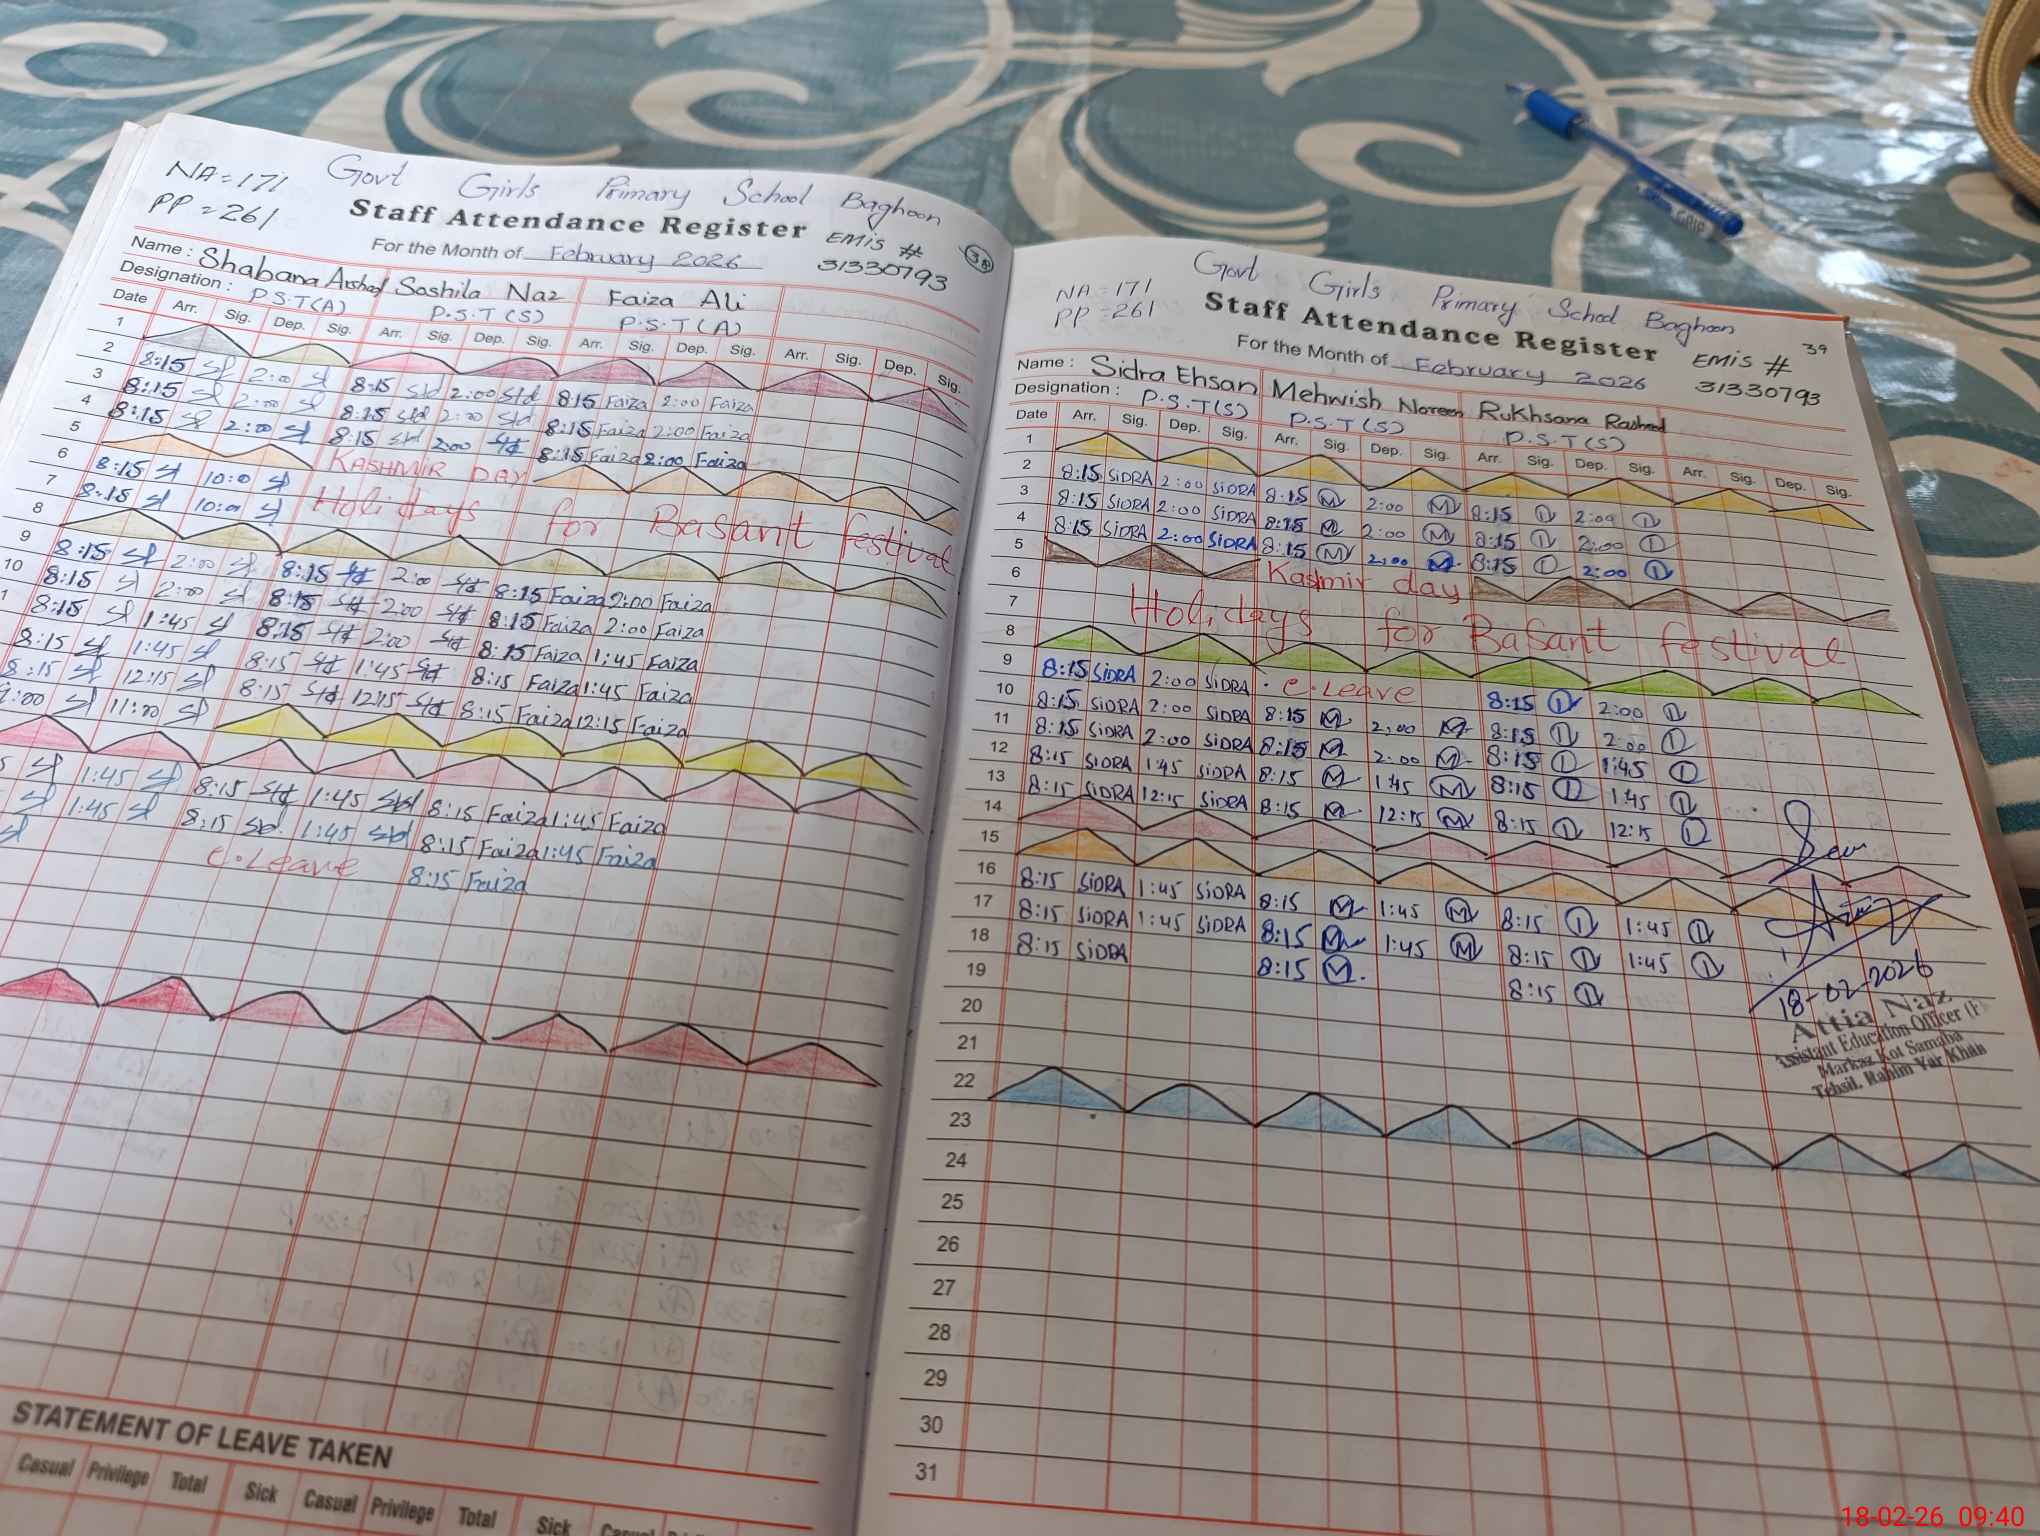 NA=171 Govt Girls Primary School Baghoon
PP=261 Staff Attendance Register EMIS #
For the Month of February 2026 31330793 38
Name : Shabana Arshad Sashila Naz Faiza Ali
Designation : P.S.T(A) P.S.T(S) P.S.T(A)
Date Arr. Sig. Dep. Sig. Arr. Sig. Dep. Sig. Arr. Sig. Dep. Sig. Arr. Sig. Dep. Sig.
1
2 8:15 2:00 8:15 Std 2:00 Std 8:15 Faiza 2:00 Faiza
3 8:15 2:00 8:15 Std 2:00 Std 8:15 Faiza 2:00 Faiza
4 8:15 2:00 8:15 Std 2:00 Std 8:15 Faiza 2:00 Faiza
5 KASHMIR DAY
6 8:15 10:00 Holidays for Basant festival
7 8:15 10:00
8
9 8:15 2:00 8:15 Std 2:00 Std 8:15 Faiza 2:00 Faiza
10 8:15 2:00 8:15 Std 2:00 Std 8:15 Faiza 2:00 Faiza
1 8:15 1:45 8:15 Std 2:00 Std 8:15 Faiza 1:45 Faiza
8:15 1:45 8:15 Std 1:45 Std 8:15 Faiza 1:45 Faiza
8:15 12:15 8:15 Std 12:15 Std 8:15 Faiza 12:15 Faiza
9:00 11:00
5 1:45 8:15 Std 1:45 Std 8:15 Faiza 1:45 Faiza
1:45 8:15 Std 1:45 Std 8:15 Faiza 1:45 Faiza
C.Leave 8:15 Faiza
STATEMENT OF LEAVE TAKEN
Casual Privilege Total Sick Casual Privilege Total Sick
Govt Girls Primary School Baghoon
NA=171
PP=261 Staff Attendance Register EMIS # 39
For the Month of February 2026 31330793
Name : Sidra Ehsan Mehwish Noreen Rukhsana Rasheed
Designation : P.S.T(S) P.S.T(S) P.S.T(S)
Date Arr. Sig. Dep. Sig. Arr. Sig. Dep. Sig. Arr. Sig. Dep. Sig. Arr. Sig. Dep. Sig.
1
2 8:15 SiDRA 2:00 SiDRA 8:15 M 2:00 M 8:15 2:00
3 8:15 SiDRA 2:00 SiDRA 8:15 M 2:00 M 8:15 2:00
4 8:15 SiDRA 2:00 SiDRA 8:15 M 2:00 M 8:15 2:00
5 Kashmir day
6 Holidays for Basant festival
7
8
9 8:15 SiDRA 2:00 SiDRA C.Leave 8:15 2:00
10 8:15 SiDRA 2:00 SiDRA 8:15 M 2:00 M 8:15 2:00
11 8:15 SiDRA 2:00 SiDRA 8:15 M 2:00 M 8:15 1:45
12 8:15 SiDRA 1:45 SiDRA 8:15 M 1:45 M 8:15 1:45
13 8:15 SiDRA 12:15 SiDRA 8:15 M 12:15 M 8:15 12:15
14
15
16 8:15 SiDRA 1:45 SiDRA 8:15 M 1:45 M 8:15 1:45
17 8:15 SiDRA 1:45 SiDRA 8:15 M 1:45 M 8:15 1:45
18 8:15 SiDRA 8:15 M 8:15
19
20
21
22
23
24
25
26
27
28
29
30
31
18-02-2026
Attia Naz
Assistant Education Officer (F)
Markaz Kot Samaba
Tehsil. Rahim Yar Khan
18-02-26 09:40